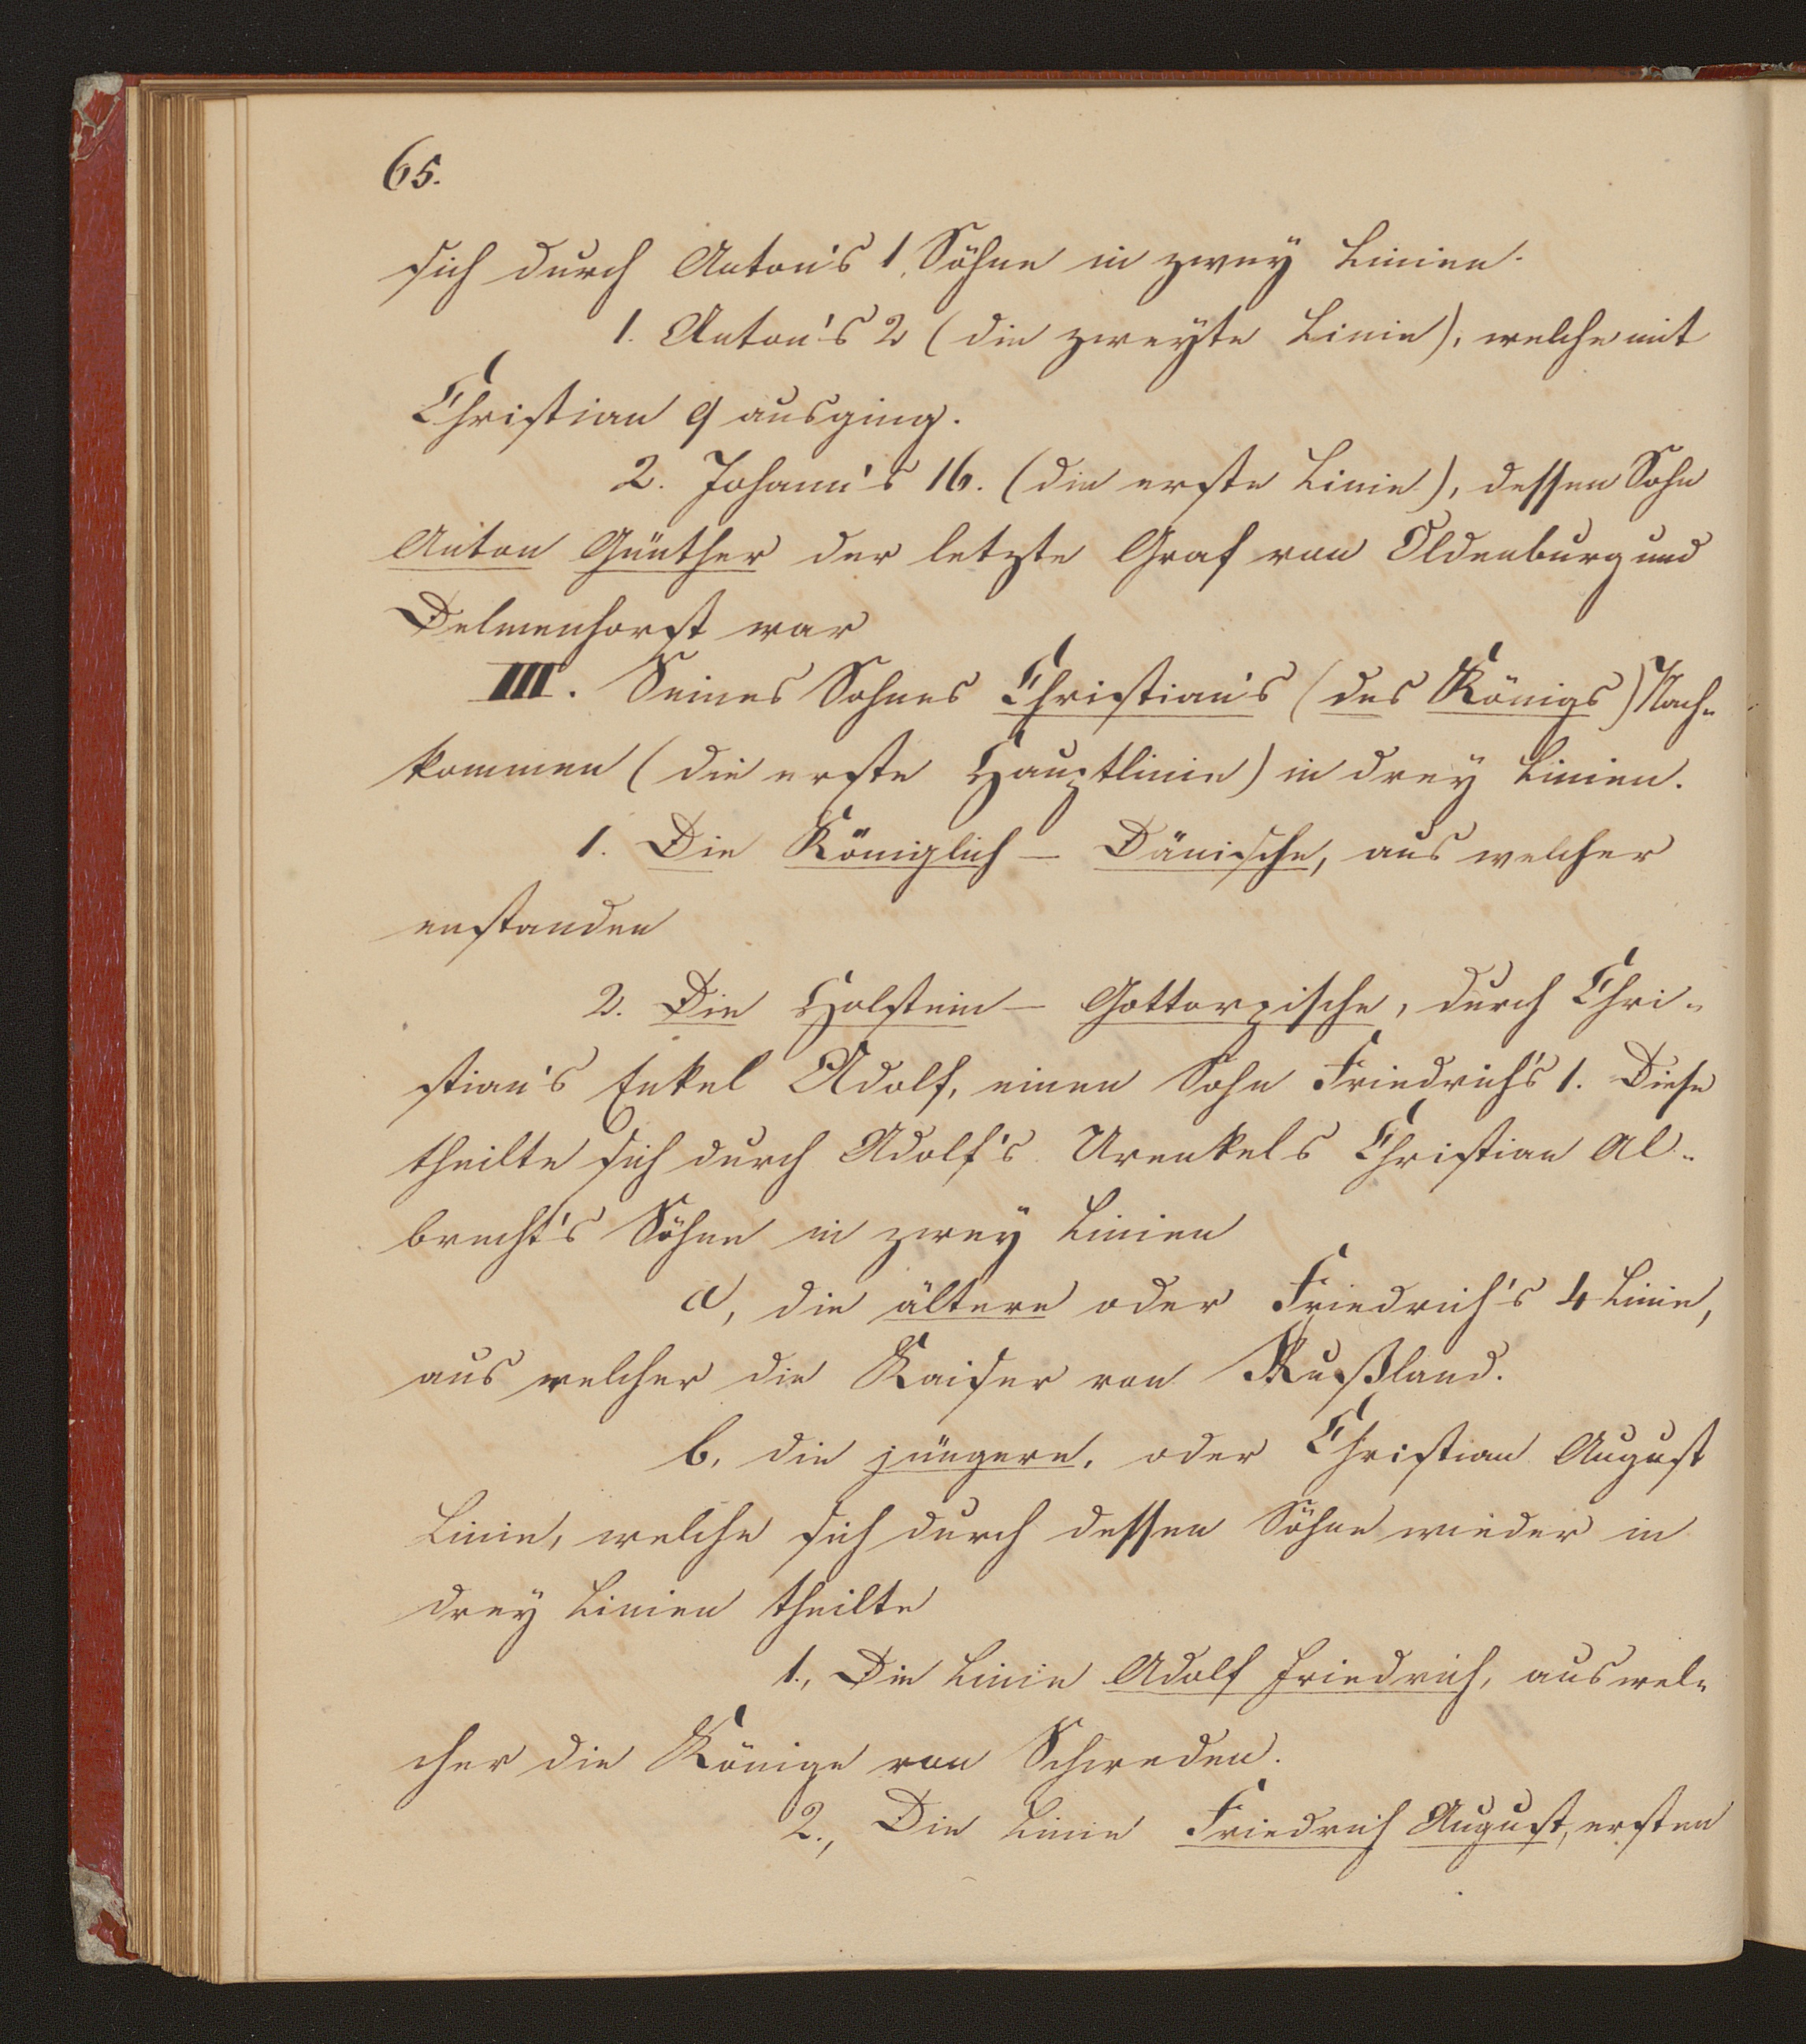 65.
sich durch Anton's 1. Söhne in zwey Linien.
1. Anton's 2 (die zweyte Linie), welche mit
Christian 9 ausging.
2. Johann's 16. (die erste Linie), dessen Sohn
Anton Günther der letzte Graf von Oldenburg und
Delmenhorst war
III. Seines Sohnes Christian's (des Königs) Nach-
kommen (die erste Hauptlinie) in drey Linien.
1. Die Königlich - Dänische, aus welcher
enstanden
2. Die Holstein - Gottorpische, durch Chri-
stian's Enkel Adolf, einen Sohn Friedrich's 1. Diese
theilte sich durch Adolf's Urenkels Christian Al-
brecht's Söhne in zwey Linien
a, die ältere oder Friedrich's 4 Linie,
aus welcher die Kaiser von Rußland.
b, die jüngere, oder Christian August
Linie, welche sich durch dessen Söhne wieder in
drey Linien theilte
1., Die Linie Adolf Friedrich, aus wel-
cher die Könige von Schweden.
2., Die Linie Friedrich August, ersten